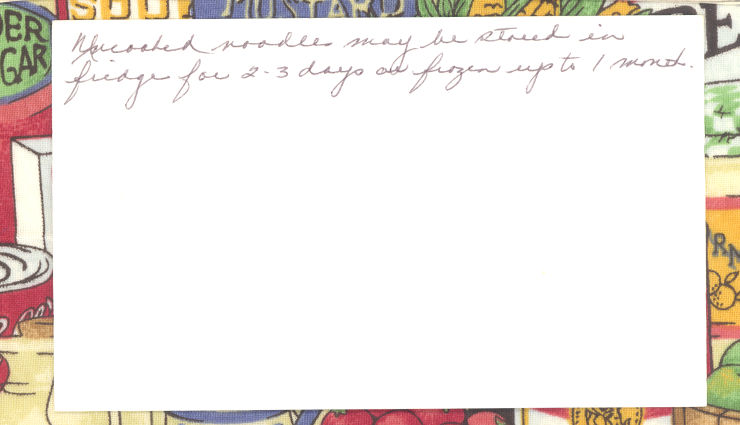 Uncooked noodles may be stored in
fridge for 2-3 days or frozen up to 1 month.
DER
GAR
SOU
MUSTARD